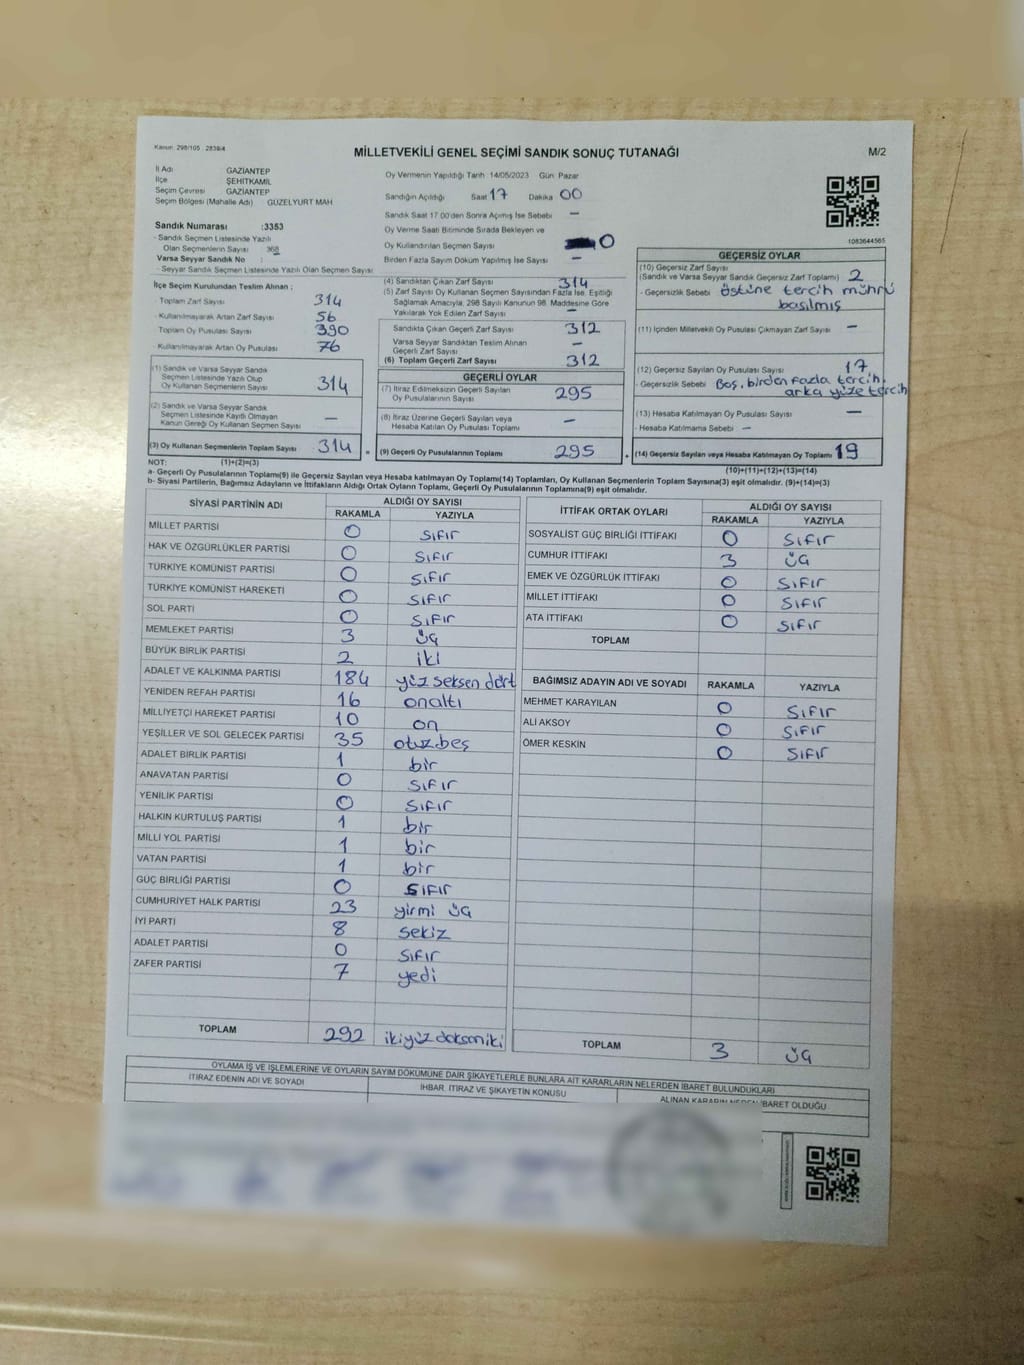 Kanun: 298/105 , 2839/4
MİLLETVEKİLİ GENEL SEÇİMİ SANDIK SONUÇ TUTANAĞI
M/2
İl Adı GAZİANTEP
İlçe ŞEHİTKAMİL
Seçim Çevresi GAZİANTEP
Seçim Bölgesi (Mahalle Adı) GÜZELYURT MAH.
Sandık Numarası :3353
- Sandık Seçmen Listesinde Yazılı
Olan Seçmenlerin Sayısı 368
Varsa Seyyar Sandık No :
- Seyyar Sandık Seçmen Listesinde Yazılı Olan Seçmen Sayısı
İlçe Seçim Kurulundan Teslim Alınan ;
- Toplam Zarf Sayısı 314
- Kullanılmayarak Artan Zarf Sayısı 56
Toplam Oy Pusulası Sayısı 390
- Kullanılmayarak Artan Oy Pusulası 76
(1) Sandık ve Varsa Seyyar Sandık
Seçmen Listesinde Yazılı Olup
Oy Kullanan Seçmenlerin Sayısı 314
(2) Sandık ve Varsa Seyyar Sandık
Seçmen Listesinde Kayıtlı Olmayan
Kanun Gereği Oy Kullanan Seçmen Sayısı —
(3) Oy Kullanan Seçmenlerin Toplam Sayısı 314 =
Oy Vermenin Yapıldığı Tarih 14/05/2023 Gün Pazar
Sandığın Açıldığı Saat 17 Dakika 00
Sandık Saat 17.00'den Sonra Açılmış İse Sebebi —
Oy Verme Saati Bitiminde Sırada Bekleyen ve
Oy Kullandırılan Seçmen Sayısı 0
Birden Fazla Sayım Döküm Yapılmış İse Sayısı —
(4) Sandıktan Çıkan Zarf Sayısı 314
(5) Zarf Sayısı Oy Kullanan Seçmen Sayısından Fazla İse, Eşitliği
Sağlamak Amacıyla, 298 Sayılı Kanunun 98. Maddesine Göre
Yakılarak Yok Edilen Zarf Sayısı —
Sandıkta Çıkan Geçerli Zarf Sayısı 312
Varsa Seyyar Sandıktan Teslim Alınan
Geçerli Zarf Sayısı —
(6) Toplam Geçerli Zarf Sayısı 312
GEÇERLİ OYLAR
(7) İtiraz Edilmeksizin Geçerli Sayılan
Oy Pusulalarının Sayısı 295
(8) İtiraz Üzerine Geçerli Sayılan veya
Hesaba Katılan Oy Pusulası Toplamı —
(9) Geçerli Oy Pusulalarının Toplamı 295 +
1083644565
GEÇERSİZ OYLAR
(10) Geçersiz Zarf Sayısı
(Sandık ve Varsa Seyyar Sandık Geçersiz Zarf Toplamı) 2
- Geçersizlik Sebebi üstüne tercih mührü
basılmış
(11) İçinden Milletvekili Oy Pusulası Çıkmayan Zarf Sayısı —
(12) Geçersiz Sayılan Oy Pusulası Sayısı 17
- Geçersizlik Sebebi Boş, birden fazla tercih,
arka yüze tercih
(13) Hesaba Katılmayan Oy Pusulası Sayısı —
- Hesaba Katılmama Sebebi —
(14) Geçersiz Sayılan veya Hesaba Katılmayan Oy Toplamı 19
NOT: (1)+(2)=(3) (10)+(11)+(12)+(13)=(14)
a- Geçerli Oy Pusulalarının Toplamı(9) ile Geçersiz Sayılan veya Hesaba katılmayan Oy Toplamı(14) Toplamları, Oy Kullanan Seçmenlerin Toplam Sayısına(3) eşit olmalıdır. (9)+(14)=(3)
b- Siyasi Partilerin, Bağımsız Adayların ve İttifakların Aldığı Ortak Oyların Toplamı, Geçerli Oy Pusulalarının Toplamına(9) eşit olmalıdır.
SİYASİ PARTİNİN ADI ALDIĞI OY SAYISI
RAKAMLA YAZIYLA
MİLLET PARTİSİ 0 sıfır
HAK VE ÖZGÜRLÜKLER PARTİSİ 0 sıfır
TÜRKİYE KOMÜNİST PARTİSİ 0 sıfır
TÜRKİYE KOMÜNİST HAREKETİ 0 sıfır
SOL PARTİ 0 sıfır
MEMLEKET PARTİSİ 3 üç
BÜYÜK BİRLİK PARTİSİ 2 iki
ADALET VE KALKINMA PARTİSİ 184 yüz seksen dört
YENİDEN REFAH PARTİSİ 16 onaltı
MİLLİYETÇİ HAREKET PARTİSİ 10 on
YEŞİLLER VE SOL GELECEK PARTİSİ 35 otuz beş
ADALET BİRLİK PARTİSİ 1 bir
ANAVATAN PARTİSİ 0 sıfır
YENİLİK PARTİSİ 0 sıfır
HALKIN KURTULUŞ PARTİSİ 1 bir
MİLLİ YOL PARTİSİ 1 bir
VATAN PARTİSİ 1 bir
GÜÇ BİRLİĞİ PARTİSİ 0 sıfır
CUMHURİYET HALK PARTİSİ 23 yirmi üç
İYİ PARTİ 8 sekiz
ADALET PARTİSİ 0 sıfır
ZAFER PARTİSİ 7 yedi
TOPLAM 292 ikiyüz doksan iki
İTTİFAK ORTAK OYLARI ALDIĞI OY SAYISI
RAKAMLA YAZIYLA
SOSYALİST GÜÇ BİRLİĞİ İTTİFAKI 0 sıfır
CUMHUR İTTİFAKI 3 üç
EMEK VE ÖZGÜRLÜK İTTİFAKI 0 sıfır
MİLLET İTTİFAKI 0 sıfır
ATA İTTİFAKI 0 sıfır
TOPLAM
BAĞIMSIZ ADAYIN ADI VE SOYADI RAKAMLA YAZIYLA
MEHMET KARAYILAN 0 sıfır
ALİ AKSOY 0 sıfır
ÖMER KESKİN 0 sıfır
TOPLAM 3 üç
OYLAMA İŞ VE İŞLEMLERİNE VE OYLARIN SAYIM DÖKÜMÜNE DAİR ŞİKAYETLERLE BUNLARA AİT KARARLARIN NELERDEN İBARET BULUNDUKLARI
İTİRAZ EDENİN ADI VE SOYADI İHBAR, İTİRAZ VE ŞİKAYETİN KONUSU ALINAN KARARIN NEDEN İBARET OLDUĞU